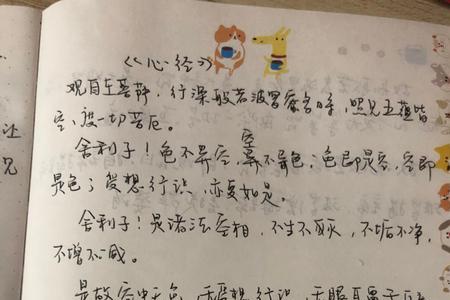 《心经》
观自在菩萨,行深般若波罗蜜多时,照见五蕴皆
空,度一切苦厄。
舍利子!色不异空,空不异色;色即是空,空即
是色;受想行识,亦复如是。
舍利子!是诸法空相,不生不灭,不垢不净,
不增不减。
是故空中无色,无受想行识,无眼耳鼻舌
还
兄